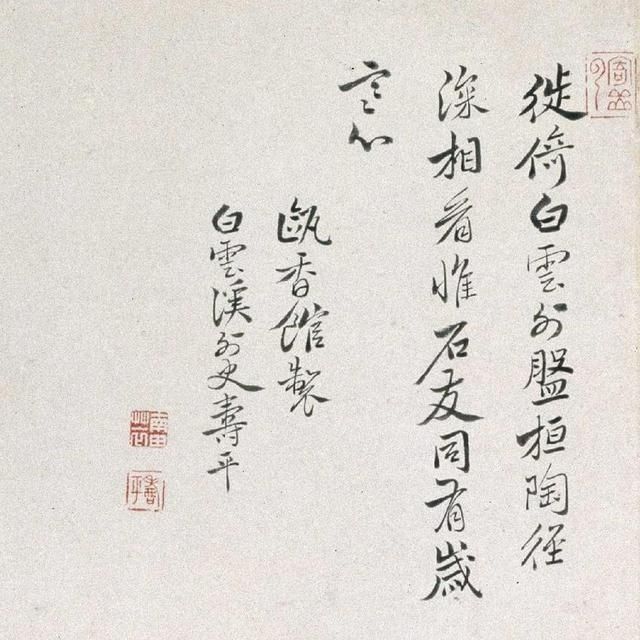 徙倚白雲外盤桓陶徑
深相看惟石友同有歲
寒心
甌香館製
白雲溪外史壽平